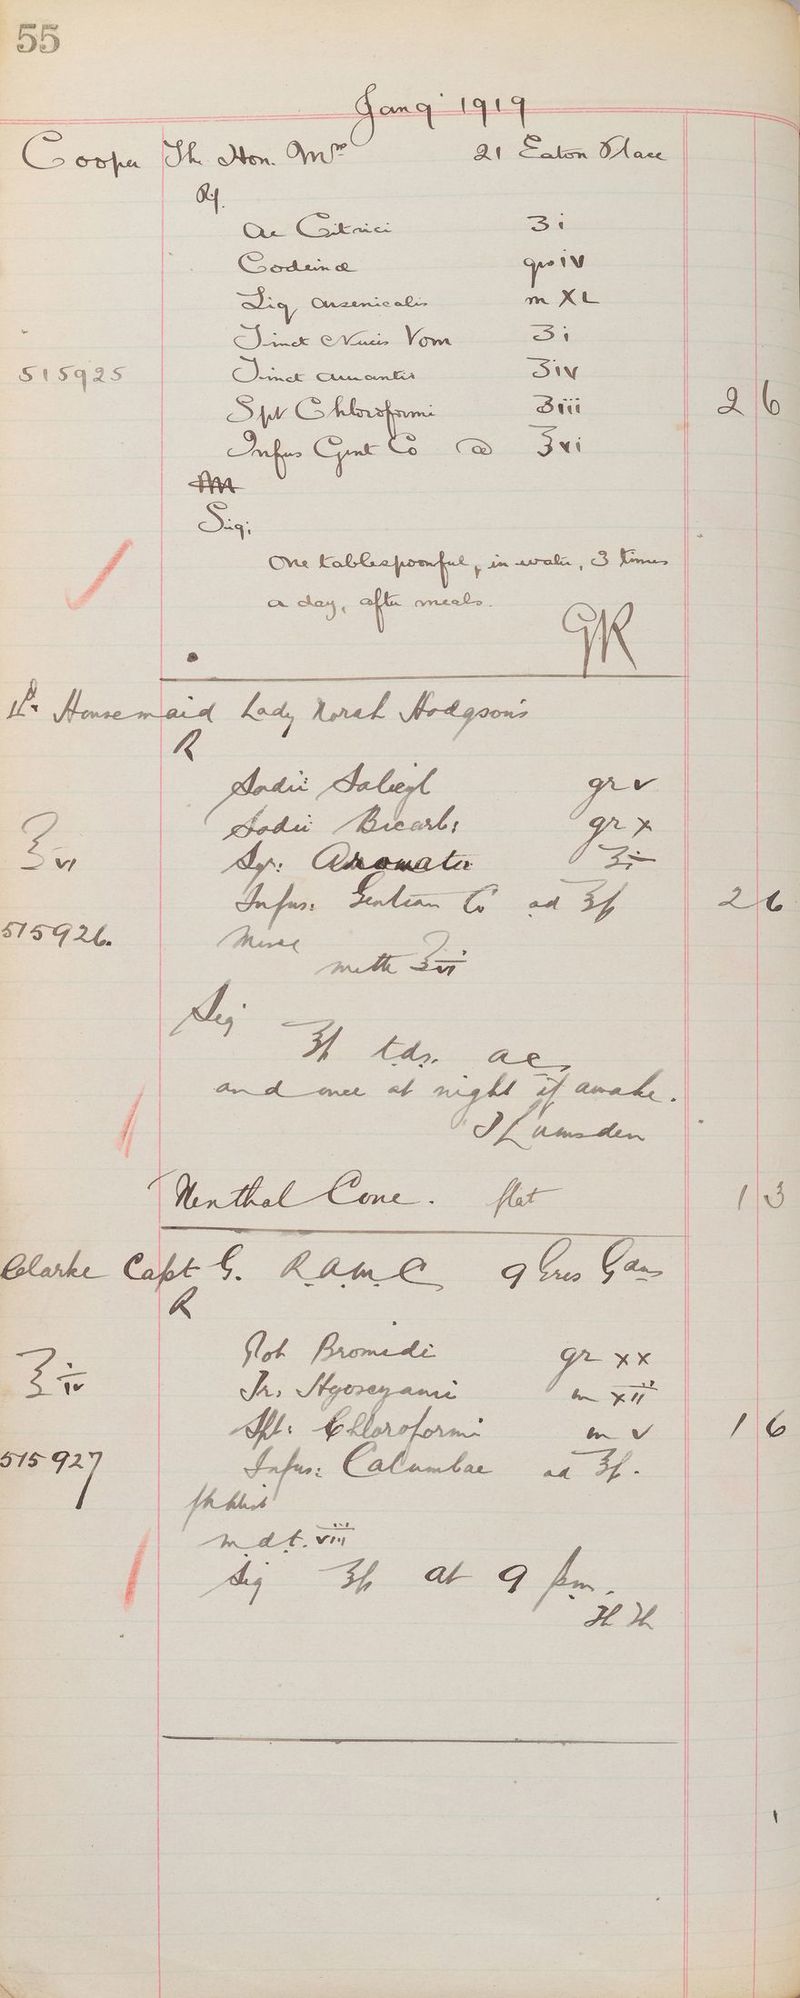 55
Jan 9 1919
Cooper The Hon. Mrs 21 Eaton Place
Rx.
Ac Citrici ʒi
Codeinæ grs iv
Liq Arsenicalis m XL
Tinct Nucis Vom ʒi
515925 Tinct Aurantii ʒiv
Spt Chloroformi ʒiii 2 6
Infus Gent Co @ ℥vi
M
Sig;
One tablespoonful, in water, 3 times
a day, after meals.
GR
Housemaid Lady Norah Hodgson's
R
Sodii Salicyl gr v
Sodii Bicarb: gr x
℥vi Syr: Aromatic ʒi
Infus: Gentian Co ad ℥ß 2 6
515926. Misce
mitte ℥vi
Sig
℥ß t.d.s. ac.
and once at night if awake.
J Lumsden
Menthol Cone. flat 1 3
Clarke Capt G. R.A.M.C 9 Gres Gdns
R
Pot Bromidi gr xx
℥iv Tr. Hyoscyami m xii
Spt: Chloroformi m v 1 6
515927 Infus: Calumbae ad ℥ß.
ft haust
m.d.t. viii
Sig ℥ß at 9 pm.